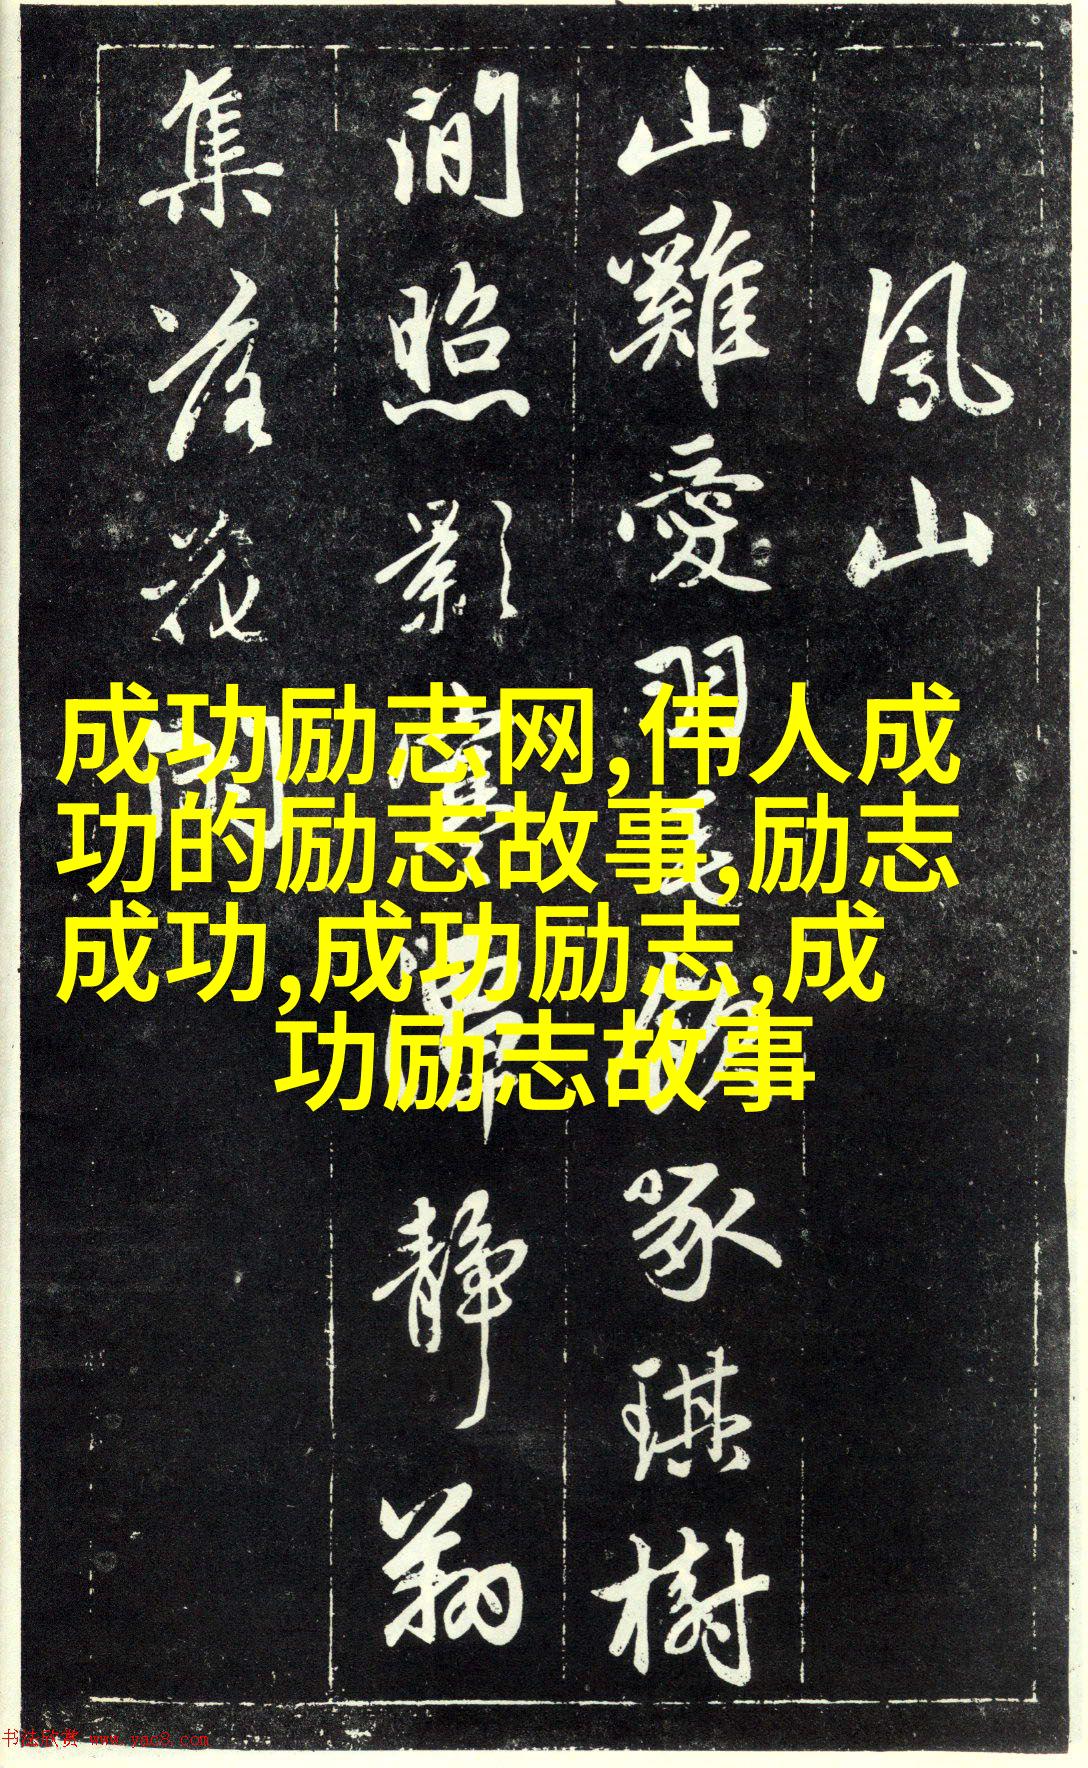 鳳山
山雞愛羽毛飲啄琪樹
間照影寒潭靜翔
集落花閑
成功励志网,伟人成
功的励志故事,励志
成功,成功励志,成
功励志故事
书法欣赏 www.yac8.com